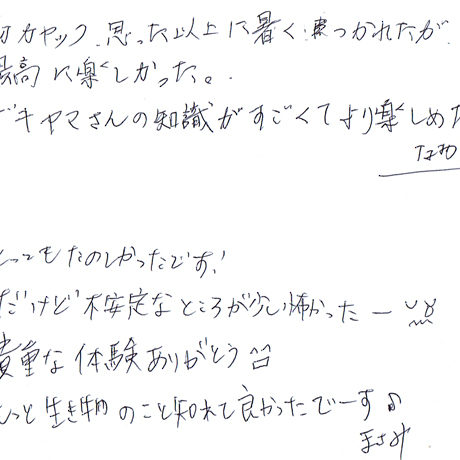 カヤック、思った以上に暑くつかれたが
最高に楽しかった。
キヤマさんの知識がすごくてより楽しめた
なお
とってもたのしかったです!
だけど不安定なところが少し怖かったー
貴重な体験ありがとう
もっと生き物のこと知れて良かったでーす♪
まさみ